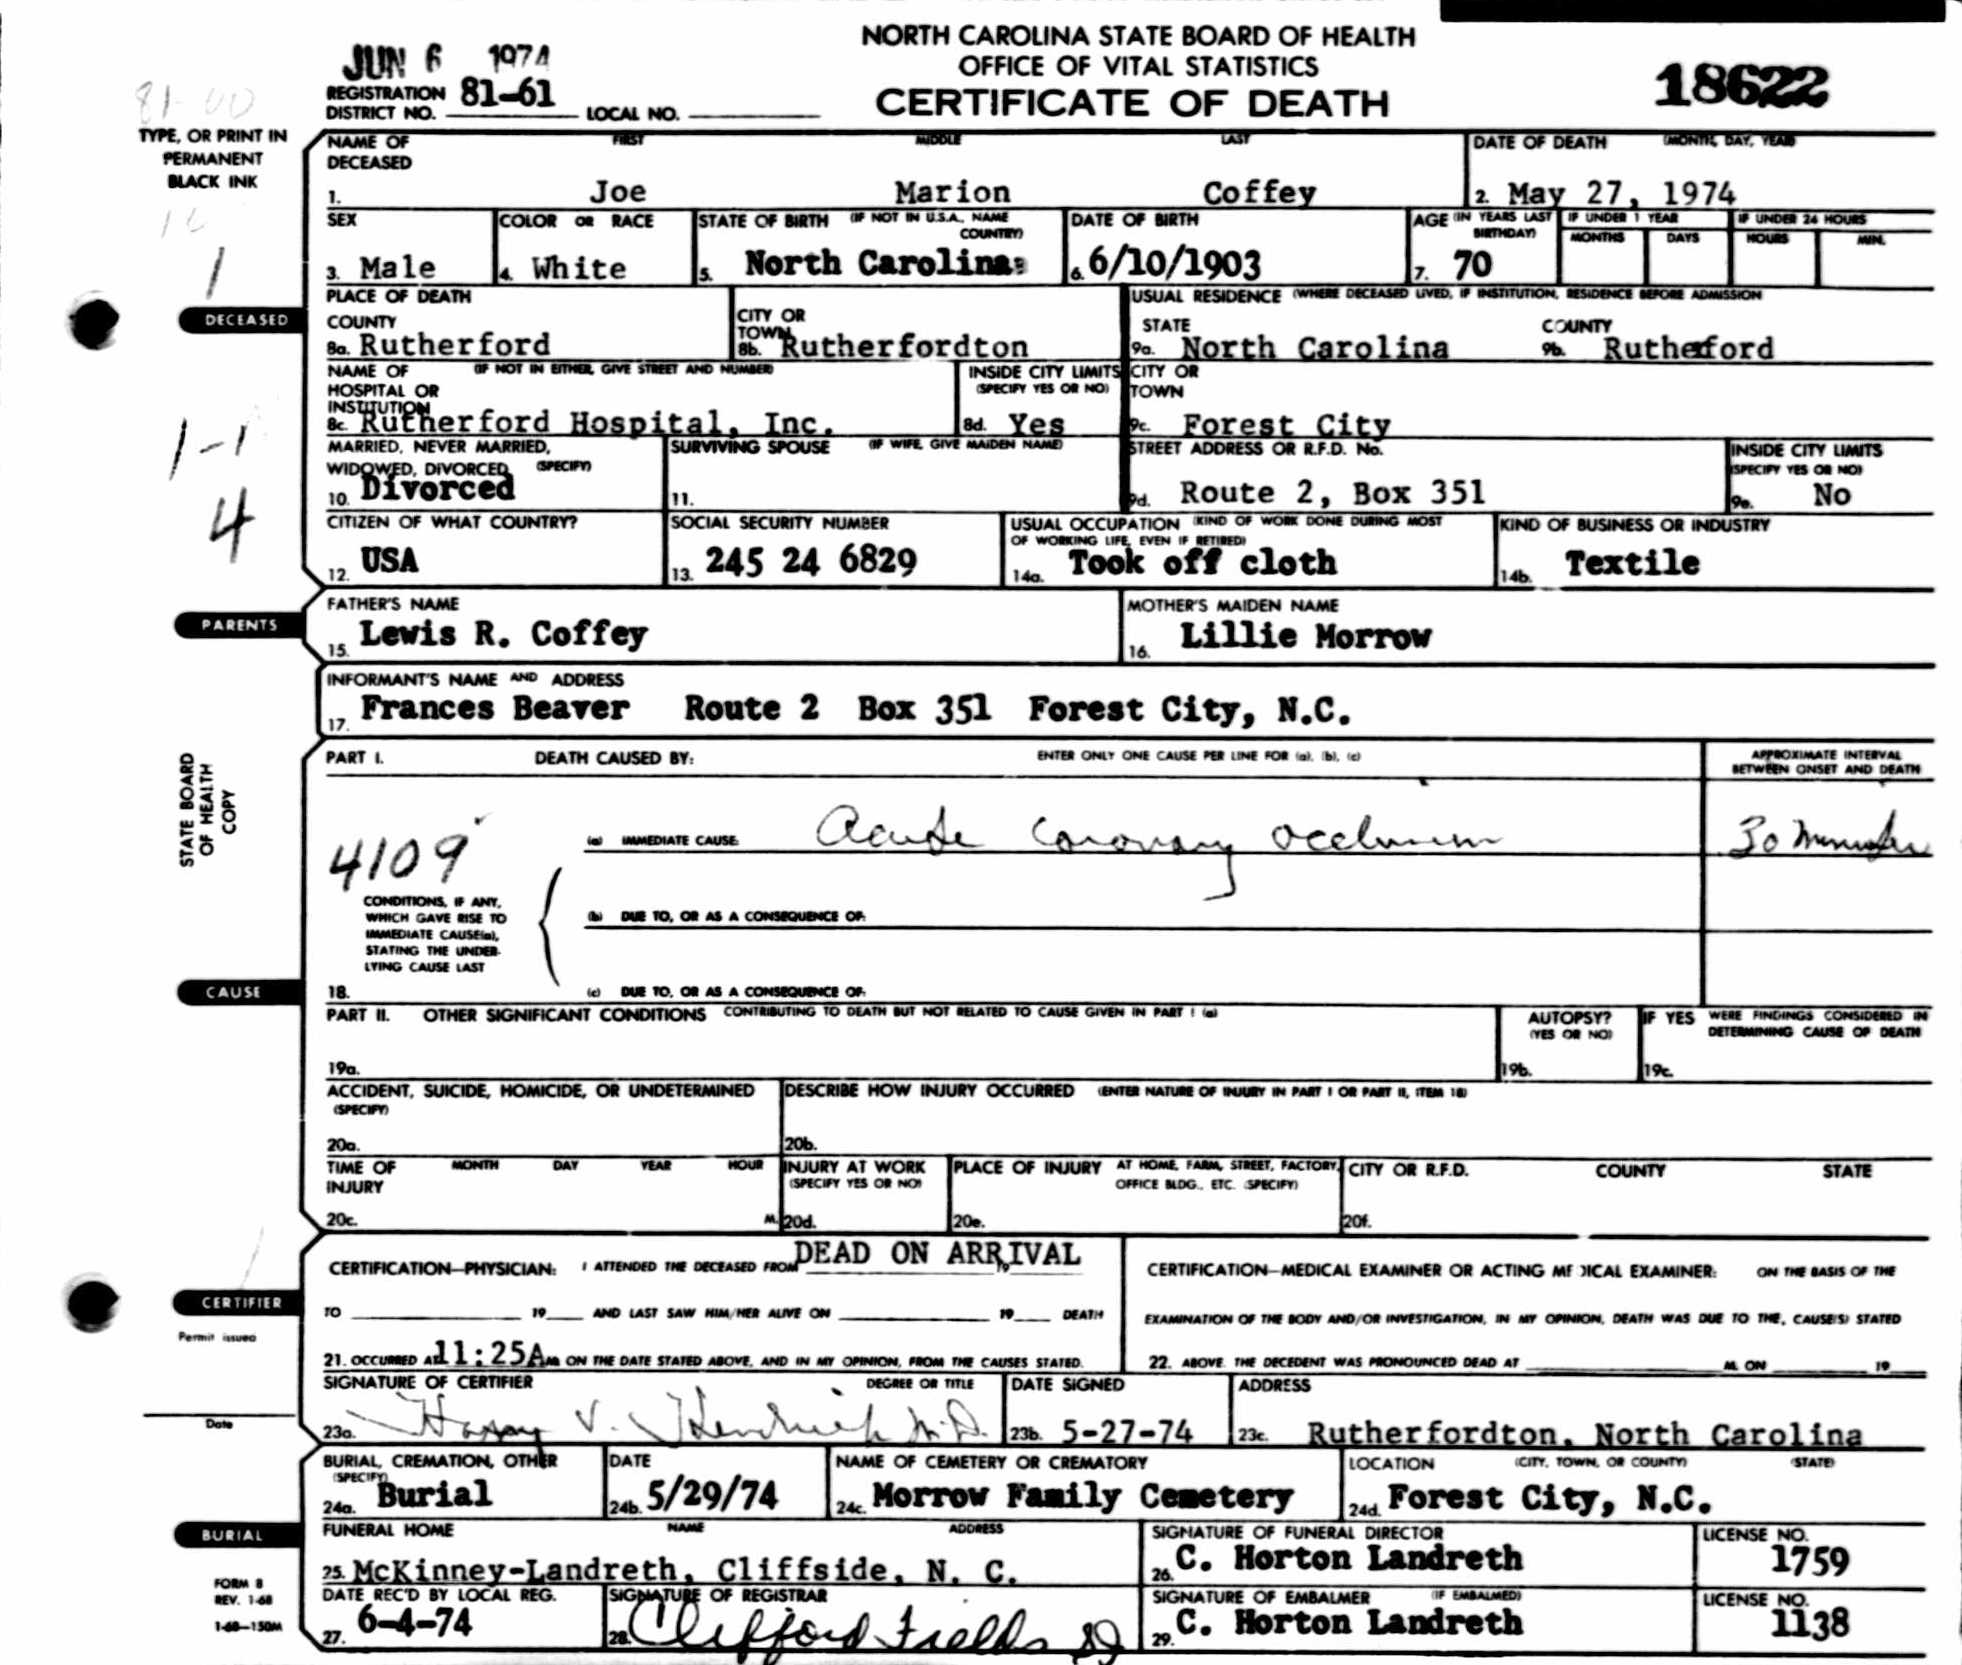 NORTH CAROLINA STATE BOARD OF HEALTH
OFFICE OF VITAL STATISTICS
CERTIFICATE OF DEATH
18622
JUN 6 1974
REGISTRATION DISTRICT NO. 81-61 LOCAL NO.
81-00
TYPE, OR PRINT IN
PERMANENT
BLACK INK
NAME OF DECEASED FIRST MIDDLE LAST
1. Joe Marion Coffey
DATE OF DEATH (MONTH, DAY, YEAR)
2. May 27, 1974
SEX
3. Male
COLOR OR RACE
4. White
STATE OF BIRTH (IF NOT IN U.S.A., NAME COUNTRY)
5. North Carolina
DATE OF BIRTH
6. 6/10/1903
AGE (IN YEARS LAST BIRTHDAY)
7. 70
IF UNDER 1 YEAR
MONTHS DAYS
IF UNDER 24 HOURS
HOURS MIN.
1
DECEASED
PLACE OF DEATH
COUNTY
8a. Rutherford
CITY OR TOWN
8b. Rutherfordton
USUAL RESIDENCE (WHERE DECEASED LIVED, IF INSTITUTION, RESIDENCE BEFORE ADMISSION
STATE
9a. North Carolina
COUNTY
9b. Rutheford
NAME OF HOSPITAL OR INSTITUTION (IF NOT IN EITHER, GIVE STREET AND NUMBER)
8c. Rutherford Hospital, Inc.
INSIDE CITY LIMITS (SPECIFY YES OR NO)
8d. Yes
CITY OR TOWN
9c. Forest City
1-1
MARRIED, NEVER MARRIED, WIDOWED, DIVORCED (SPECIFY)
10. Divorced
SURVIVING SPOUSE (IF WIFE, GIVE MAIDEN NAME)
11.
STREET ADDRESS OR R.F.D. No.
9d. Route 2, Box 351
INSIDE CITY LIMITS (SPECIFY YES OR NO)
9e. No
4
CITIZEN OF WHAT COUNTRY?
12. USA
SOCIAL SECURITY NUMBER
13. 245 24 6829
USUAL OCCUPATION (KIND OF WORK DONE DURING MOST OF WORKING LIFE, EVEN IF RETIRED)
14a. Took off cloth
KIND OF BUSINESS OR INDUSTRY
14b. Textile
PARENTS
FATHER'S NAME
15. Lewis R. Coffey
MOTHER'S MAIDEN NAME
16. Lillie Morrow
INFORMANT'S NAME AND ADDRESS
17. Frances Beaver Route 2 Box 351 Forest City, N.C.
STATE BOARD
OF HEALTH
COPY
PART I. DEATH CAUSED BY: ENTER ONLY ONE CAUSE PER LINE FOR (a), (b), (c)
APPROXIMATE INTERVAL
BETWEEN ONSET AND DEATH
4109
(a) IMMEDIATE CAUSE: Acute Coronary Occlusion
30 Minutes
CONDITIONS, IF ANY,
WHICH GAVE RISE TO
IMMEDIATE CAUSE(a),
STATING THE UNDER-
LYING CAUSE LAST
(b) DUE TO, OR AS A CONSEQUENCE OF:
CAUSE
18.
(c) DUE TO, OR AS A CONSEQUENCE OF:
PART II. OTHER SIGNIFICANT CONDITIONS CONTRIBUTING TO DEATH BUT NOT RELATED TO CAUSE GIVEN IN PART I (a)
19a.
AUTOPSY?
(YES OR NO)
19b.
IF YES WERE FINDINGS CONSIDERED IN
DETERMINING CAUSE OF DEATH
19c.
ACCIDENT, SUICIDE, HOMICIDE, OR UNDETERMINED
(SPECIFY)
20a.
DESCRIBE HOW INJURY OCCURRED (ENTER NATURE OF INJURY IN PART I OR PART II, ITEM 18)
20b.
TIME OF INJURY MONTH DAY YEAR HOUR
20c. M.
INJURY AT WORK
(SPECIFY YES OR NO)
20d.
PLACE OF INJURY AT HOME, FARM, STREET, FACTORY,
OFFICE BLDG., ETC. (SPECIFY)
20e.
CITY OR R.F.D. COUNTY STATE
20f.
CERTIFIER
Permit issued
Date
CERTIFICATION—PHYSICIAN: I ATTENDED THE DECEASED FROM DEAD ON ARRIVAL 19
TO 19 AND LAST SAW HIM/HER ALIVE ON 19 DEATH
21. OCCURRED AT 11:25A M ON THE DATE STATED ABOVE, AND IN MY OPINION, FROM THE CAUSES STATED.
CERTIFICATION—MEDICAL EXAMINER OR ACTING MEDICAL EXAMINER: ON THE BASIS OF THE
EXAMINATION OF THE BODY AND/OR INVESTIGATION, IN MY OPINION, DEATH WAS DUE TO THE, CAUSE(S) STATED
22. ABOVE. THE DECEDENT WAS PRONOUNCED DEAD AT M. ON 19
SIGNATURE OF CERTIFIER DEGREE OR TITLE
23a. Harry V. Hendrick M.D.
DATE SIGNED
23b. 5-27-74
ADDRESS
23c. Rutherfordton, North Carolina
BURIAL, CREMATION, OTHER
(SPECIFY)
24a. Burial
DATE
24b. 5/29/74
NAME OF CEMETERY OR CREMATORY
24c. Morrow Family Cemetery
LOCATION (CITY, TOWN, OR COUNTY) (STATE)
24d. Forest City, N.C.
BURIAL
FUNERAL HOME NAME ADDRESS
25. McKinney-Landreth, Cliffside, N. C.
SIGNATURE OF FUNERAL DIRECTOR
26. C. Horton Landreth
LICENSE NO.
1759
FORM 8
REV. 1-68
1-68—150M
DATE REC'D BY LOCAL REG.
27. 6-4-74
SIGNATURE OF REGISTRAR
28. Clifford Fields
SIGNATURE OF EMBALMER (IF EMBALMED)
29. C. Horton Landreth
LICENSE NO.
1138